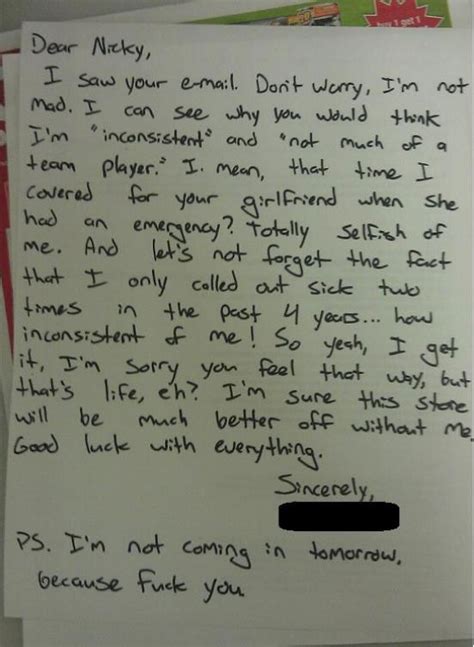 buy 1 get 1
Dear Nicky,
I saw your e-mail. Don't worry, I'm not
mad. I can see why you would think
I'm "inconsistent" and "not much of a
team player." I. mean, that time I
covered for your girlfriend when she
had an emergency? Totally selfish of
me. And let's not forget the fact
that I only called out sick two
times in the past 4 years... how
inconsistent of me! So yeah, I get
it, I'm sorry you feel that way, but
that's life, eh? I'm sure this store
will be much better off without me.
Good luck with everything.
Sincerely,
PS. I'm not coming in tomorrow,
because fuck you